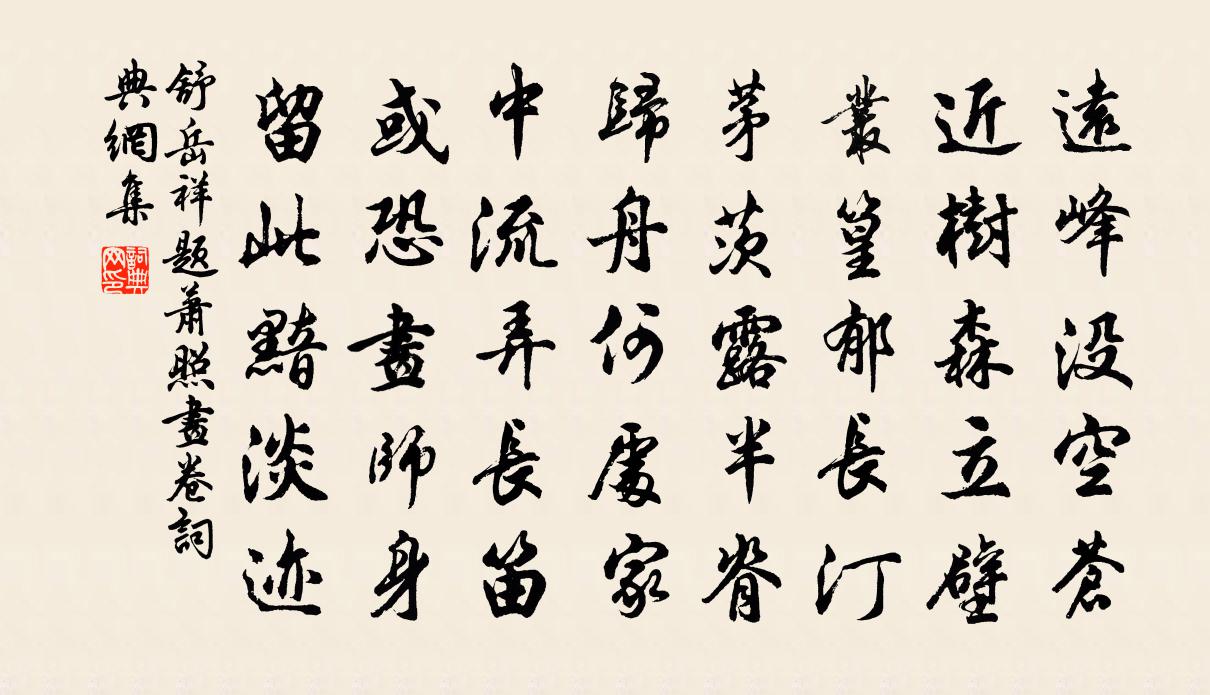 遠峰没空蒼
近樹森立壁
叢篁郁長汀
茅茨露半脊
歸舟何處家
中流弄長笛
或恐畫師身
留此黯淡迹
舒岳祥題蕭照畫卷詞
典網集
詞典網印